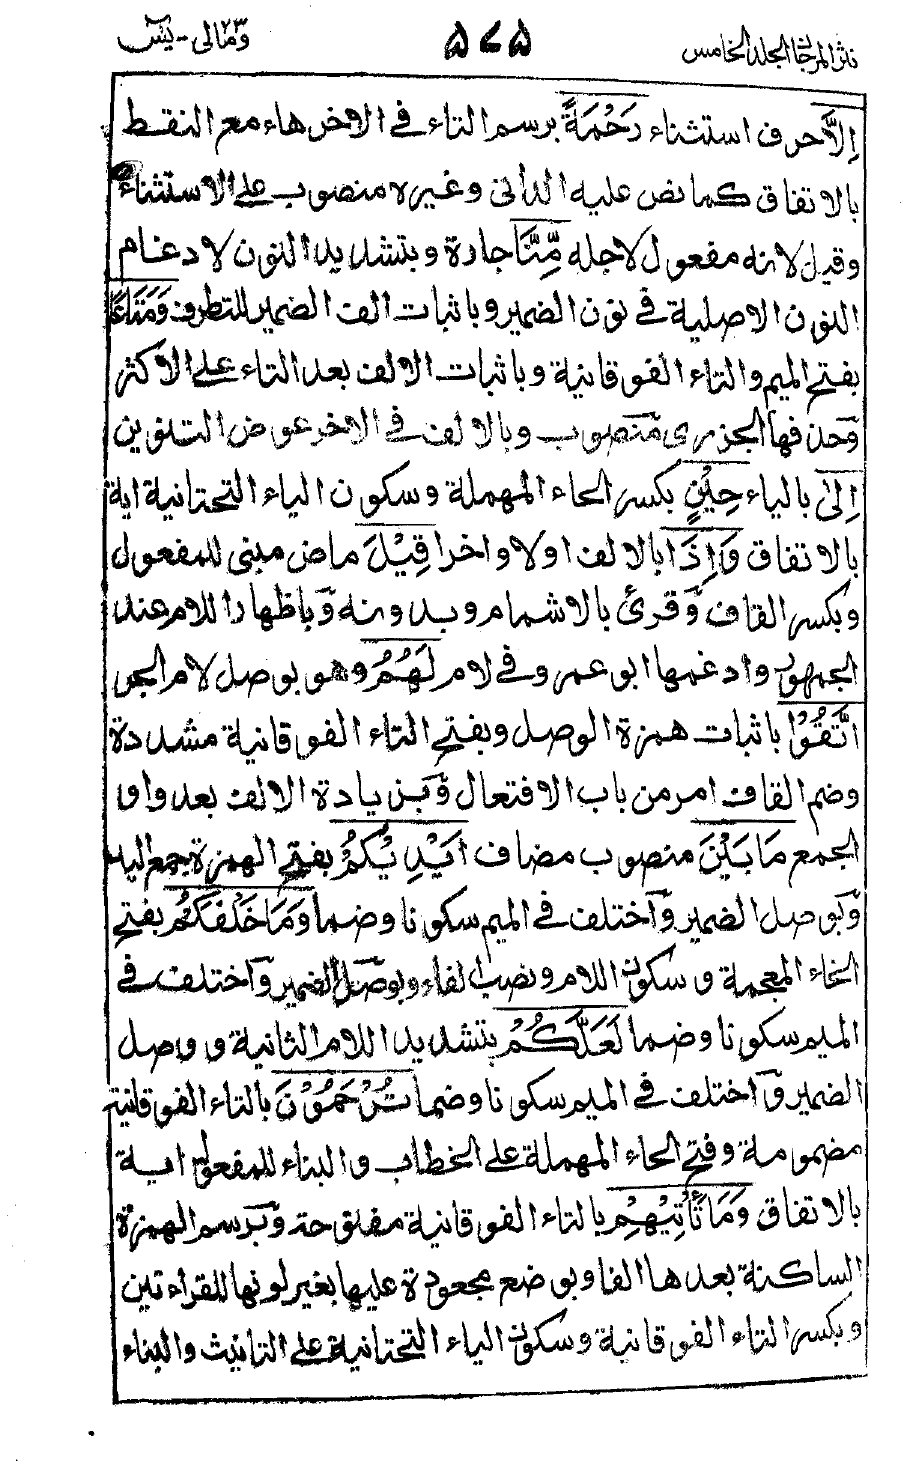 نثر المرجان المجلد الخامس ۵۷۵ ومالی ۲۳ - یٰسٓ
اِلَّا حرف استثناء رَحْمَةً برسم التاء فى الاخر هاء مع النقط
بالاتفاق كما نص عليه الدانى وغيره منصوب على الاستثناء
وقيل لانه مفعول لاجله مِّنَّا جارة وبتشديد النون لادغام
النون الاصلية فى نون الضمير وباثبات الف الضمير للتطرف وَمَتَاعًا
بفتح الميم والتاء الفوقانية وباثبات الالف بعد التاء على الاكثر
وحذفها الجزرى منصوب وبالالف فى الاخر عوض التنوين
اِلىٰ بالياء حِيْنٍ بكسر الحاء المهملة وسكون الياء التحتانية اية
بالاتفاق وَاِذَا بالالف اولا واخرا قِيْلَ ماض مبنى للمفعول
وبكسر القاف وقرئ بالاشمام وبدونه وباظهار اللام عند
الجمهور وادغمها ابو عمرو فى لام لَهُمُ وهو بوصل لام الجر
اتَّقُوْا باثبات همزة الوصل وبفتح التاء الفوقانية مشددة
وضم القاف امر من باب الافتعال وبزيادة الالف بعد واو
الجمع مَا بَيْنَ منصوب مضاف اَيْدِيْكُمْ بفتح الهمزة جمع اليد
وبوصل الضمير واختلف فى الميم سكونا وضما وَمَا خَلْفَكُمْ بفتح
الخاء المعجمة وسكون اللام ونصب الفاء وبوصل الضمير واختلف فى
الميم سكونا وضما لَعَلَّكُمْ بتشديد اللام الثانية ووصل
الضمير واختلف فى الميم سكونا وضما تُرْحَمُوْنَ بالتاء الفوقانية
مضمومة وفتح الحاء المهملة على الخطاب والبناء للمفعول اية
بالاتفاق وَمَا تَأْتِيْهِمْ بالتاء الفوقانية مفتوحة وبرسم الهمزة
الساكنة بعدها الفا وبوضع مجعودة عليها بغير لونها للقراءتين
وبكسر التاء الفوقانية وسكون الياء التحتانية على التانيث والبناء